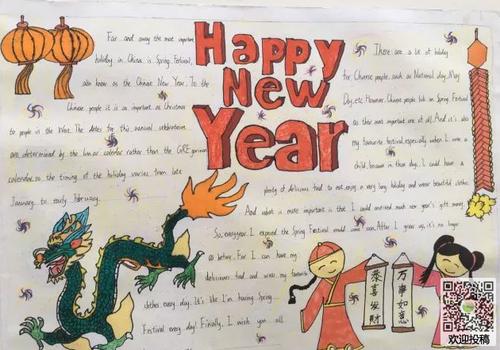 Happy
New
Year
Far and away the most important
holiday in China is Spring Festival,
also know as the Chinese New Year. To the
Chinese people it is as important as Christmas
to people in the West. The dates for this annual celebration
are determined by the lunar calendar rather than the
calendar, so the timing of the holiday varies from late
January to early February.
There are a lot of holiday
for Chinese people, such as National day, May
Day, etc. However, Chinese people take Spring Festival
as their most important one of all. And it's also
my favourite festival, especially when I were a
child. Because in these days, I could have a
plenty of delicious food to eat, enjoy a very long holiday and wear beautiful clothes.
And what is more important is that I could received much new year's gift money.
So, everyyear, I expected the Spring Festival would come soon. After I grew up, it's no longer
so better. For I can have my
delicious food and wear my favourite
clothes every day. It's like I'm having Spring
Festival every day. Finally, I wish you all
恭喜發財
万事如意
欢迎投稿